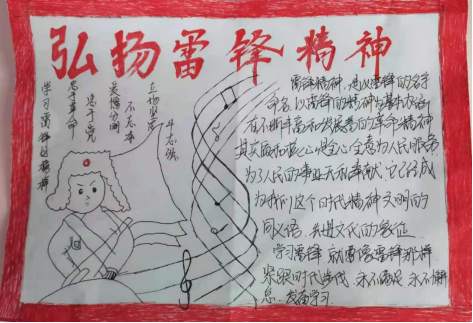 弘扬雷锋精神
学习雷锋好榜样
忠于革命
忠于党
爱憎分明
不忘本
立场坚定
斗志强
雷锋精神,是以雷锋的名字
命名,以雷锋的精神为基本内涵
在不断丰富和发展着的革命精神
其实质和核心是全心全意为人民服务
为了人民的事业无私奉献,它已经成
为我们这个时代精神文明的
同义语、先进文化的表征
学习雷锋 就要像雷锋那样
紧跟时代步伐 永不满足 永不懈
怠、发奋学习